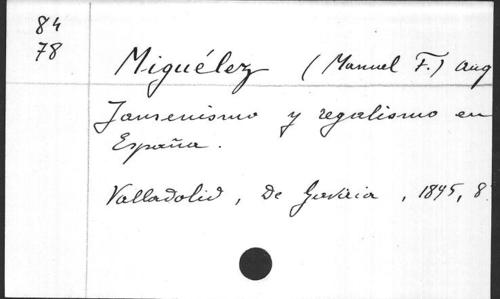 84
78
Miguélez (Manuel F.) aug
Jansenismo y regalismo en
España.
Valladolid, De Gaviria, 1895, 8